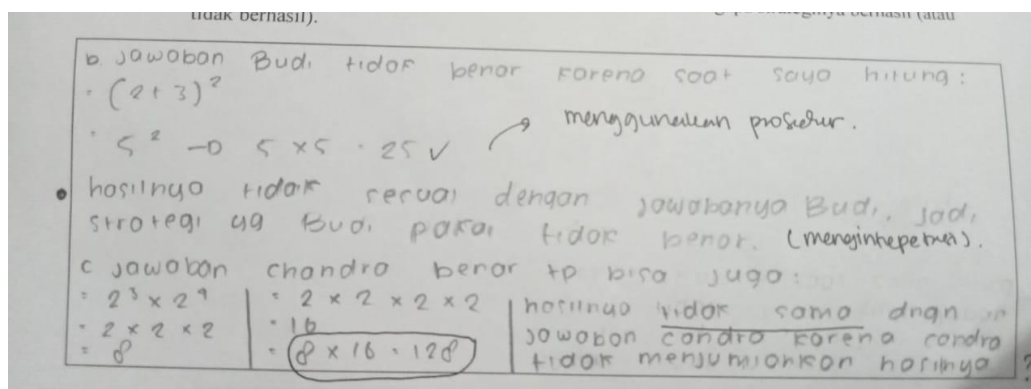 tidak berhasil).
(atau
b. Jawaban Budi tidak benar karena saat saya hitung:
= (2 + 3)²
= 5² → 5 × 5 = 25 ✓ menggunakan prosedur.
• hasilnya tidak sesuai dengan jawabanya Budi, jadi
strategi yg Budi pakai tidak benar. (mengintepetasi).
c Jawaban chandra benar tp bisa juga:
= 2³ × 2⁴
= 2 × 2 × 2
= 8
= 2 × 2 × 2 × 2
= 16
= 8 × 16 = 128
hasilnya tidak sama dngan
jawaban condro karena condro
tidak menjumlohkan hasilnya